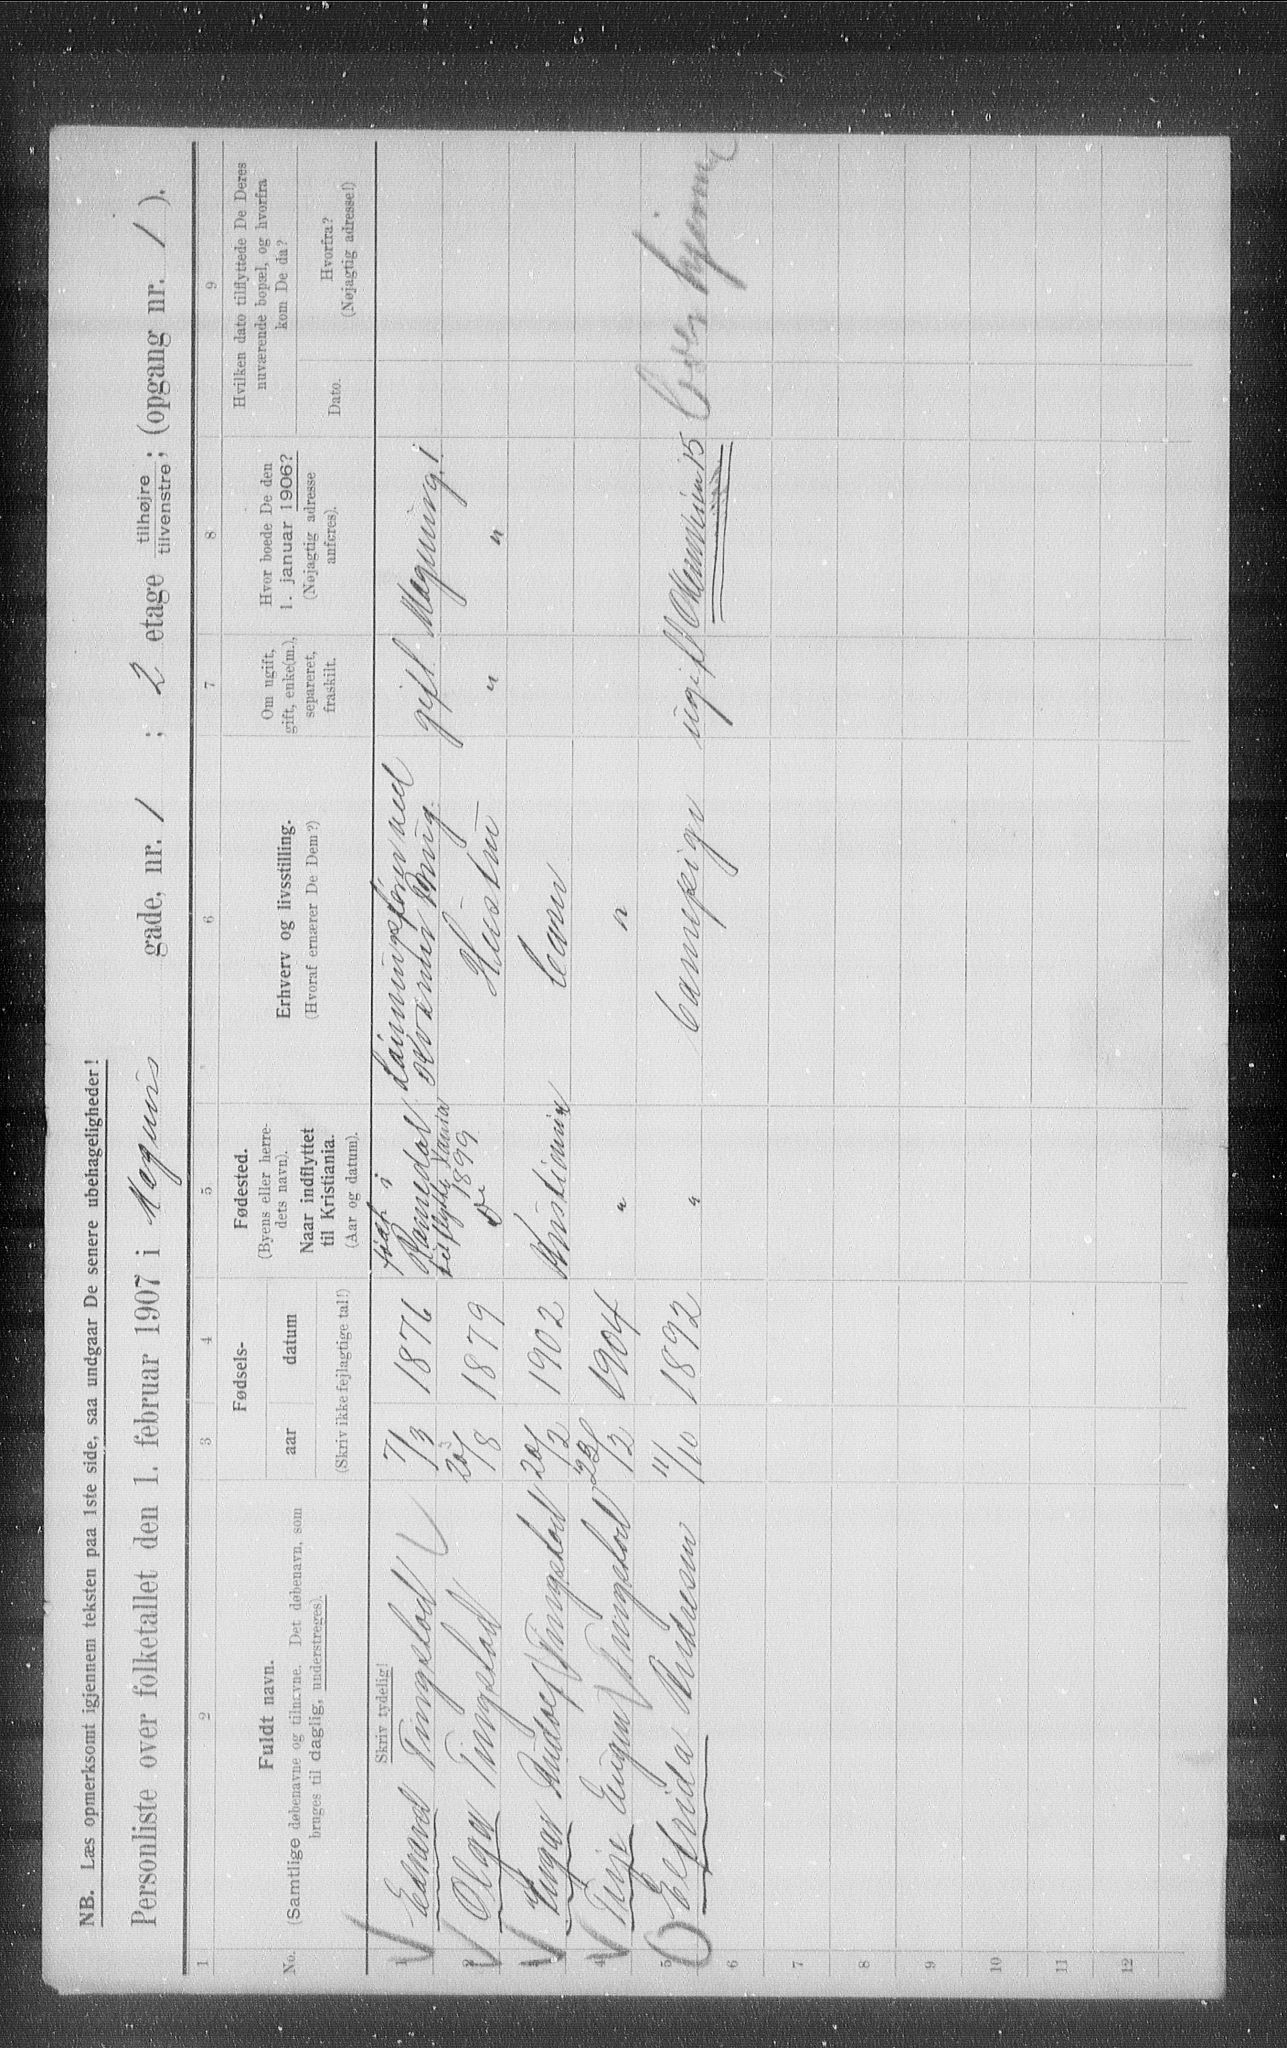 NB. Læs opmerksomt igjennem teksten paa 1ste side, saa undgaar De senere ubehageligheder!
Personliste over folketallet den 1. februar 1907 i Magnus gade, nr. 1 ; 2 etage tilhøjre tilvenstre; (opgang nr. 1 ).
1 2 3 4 5 6 7 8 9
No.
Fuldt navn.
(Samtlige døbenavne og tilnavne. Det døbenavn, som
bruges til daglig, understreges).
Fødsels-
aar datum
(Skriv ikke fejlagtige tal!)
Fødested.
(Byens eller herre-
dets navn).
Naar indflyttet
til Kristiania.
(Aar og datum).
Erhverv og livsstilling.
(Hvoraf ernærer De Dem?)
Om ugift,
gift, enke(m.),
separeret,
fraskilt.
Hvor boede De den
1. januar 1906?
(Nøjagtig adresse
anføres).
Hvilken dato tilflyttede De Deres
nuværende bopæl, og hvorfra
kom De da?
Dato.
Hvorfra?
(Nøjagtig adresse!)
Skriv tydelig!
1 Edvard Tingstad 7/3 1876 født i Romedal ved gift Magnusg. 1
tilflytte 1899
2 Olga Tingstad 20/8 1879 Hustru " "
3 Andolf Tingstad 20/2 1902 Kristiania Barn
4 Eugen Tingstad 23/2 1904 " "
5 Elfrida Andresen 11/10 1892 " Barnepige ugift 15 hjemme
6
7
8
9
10
11
12